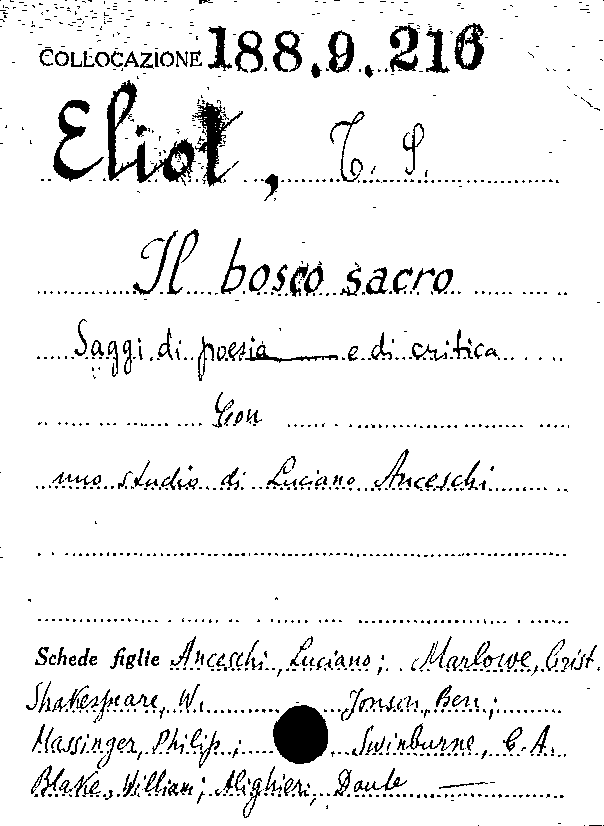 COLLOCAZIONE 188.9.216
Eliot, T. S.
Il bosco sacro
Saggi di poesia e di critica
Con
uno studio di Luciano Anceschi
Schede figlie Anceschi, Luciano; Marlowe, Crist.
Shakespeare, W. Jonson, Ben;
Massinger, Philip; Swinburne, C. A.
Blake, William; Alighieri, Dante